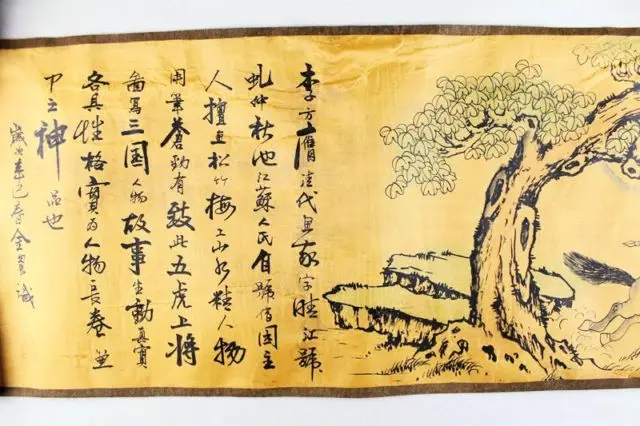 李方膺清代画家字晴江號
虬仲秋池江蘇人民自號借园主
人擅画松竹梅工山水精人物
用筆蒼勁有致此五虎上將
畫寫三國人物故事生動真實
各具性格實為人物長卷画
中之神品也
歲次辛巳春金農識